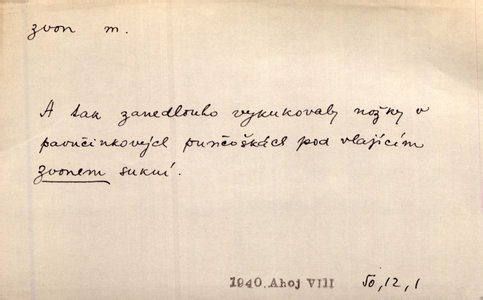 zvon m.
A tak zanedlouho vykukovaly nožky v
pavučinkových punčoškách pod vlajícím
zvonem sukní.
1940. Ahoj VIII 50,12,1